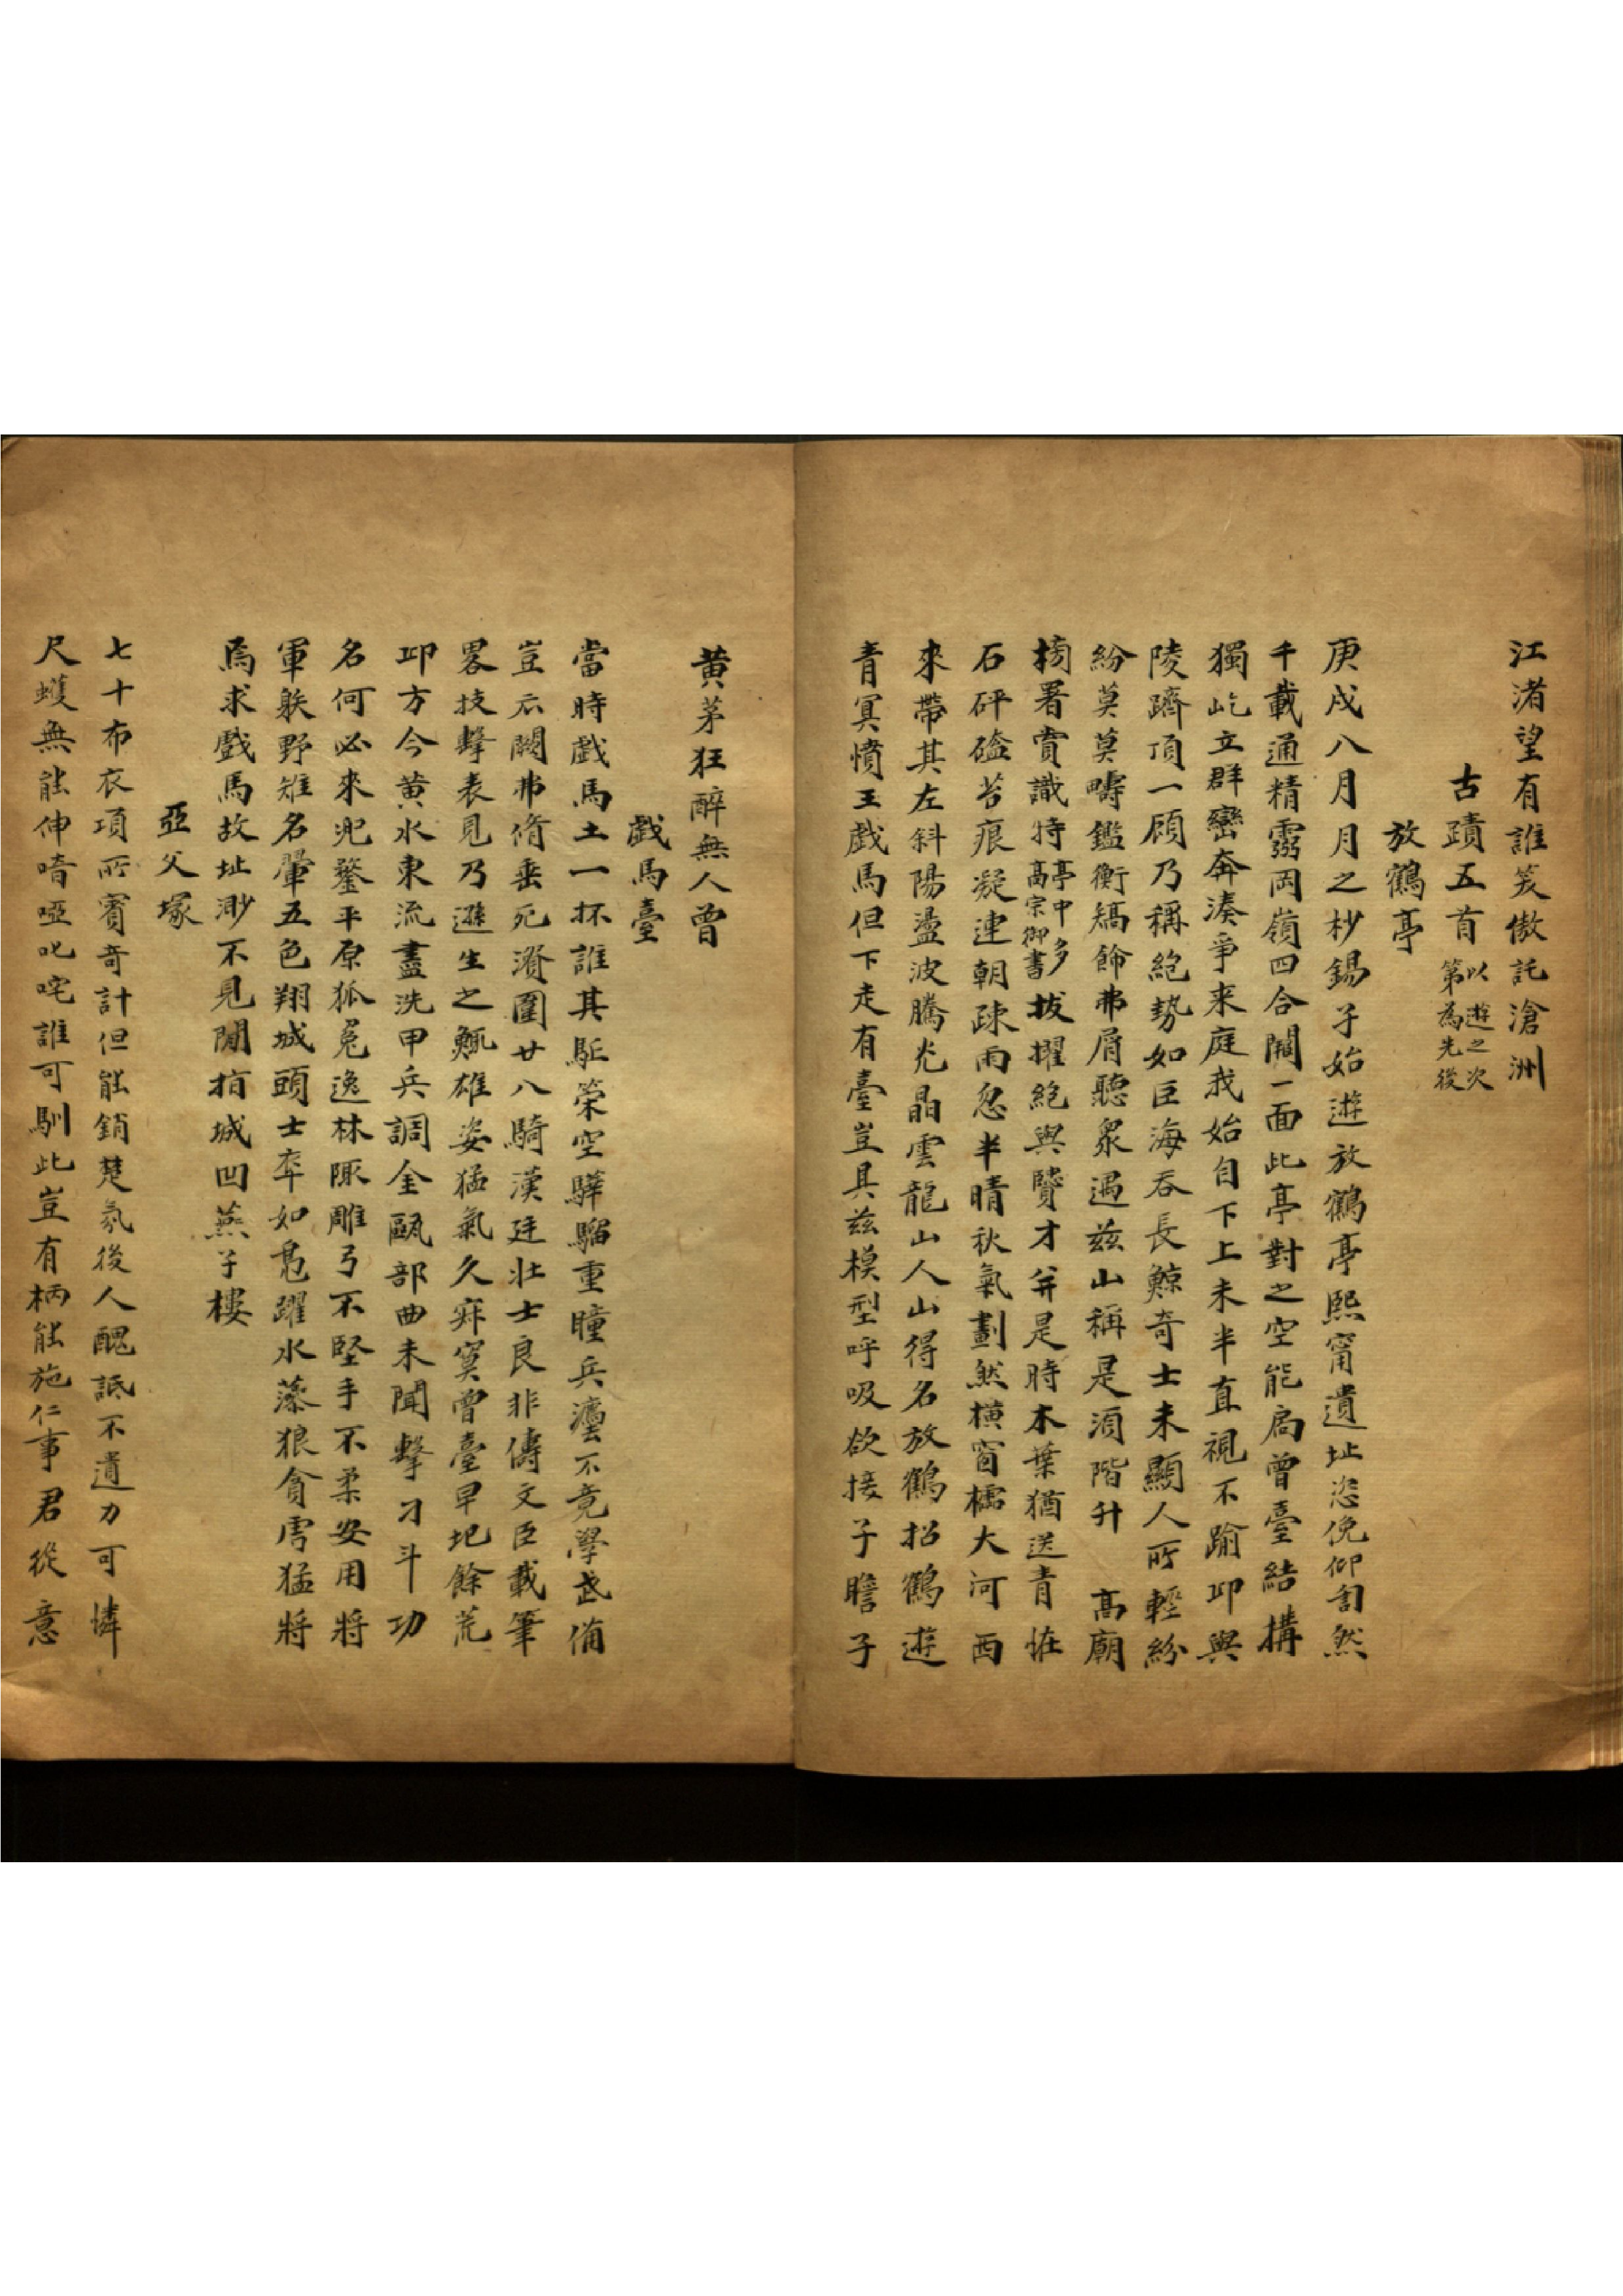 江渚望有誰笑傲託滄洲
古蹟五首以遊之次第為先後
放鶴亭
庚戌八月月之杪錫子始遊放鶴亭熙甯遺址恣俛仰割然
千載通精靈岡嶺四合闢一面此亭對之空能扃曾臺結搆
獨屹立群巒奔湊爭來庭我始自下上未半直視不踰卬與
陵躋頂一顧乃稱絕勢如巨海吞長鯨奇士未顯人所輕紛
紛莫莫疇鑑衡矯飾弗屑聽衆遇茲山稱是須階升 高廟
榜署賞識特亭中多高宗御書拔擢絕與贒才并是時木葉猶送青恠
石砰磕苔痕凝連朝疎雨忽半晴秋氣劃然橫窗櫺大河西
來帶其左斜陽盪波騰光晶雲龍山人山得名放鶴招鶴遊
青冥憤王戲馬但下走有臺豈具茲模型呼吸欲接子瞻子
黃茅狂醉無人曾
戲馬臺
當時戲馬土一抔誰其駈策空驊騮重瞳兵灋不竟學武備
豈不闕弗脩垂死潰圍廿八騎漢廷壯士良非儔文臣載筆
畧技擊表見乃遜生之鯫雄姿猛氣久寂寞曾臺早圮餘荒
邱方今黃水東流盡洗甲兵調金甌部曲未聞擊刁斗功
名何必來兜鍪平原狐兔逸林陬雕弓不堅手不柔安用將
軍躾野雉名翬五色翔城頭士卒如鳧躍水藻狼貪虎猛將
焉求戲馬故址渺不見閒指城凹燕子樓
亞父塚
七十布衣項所賓奇計但能銷楚氛後人醜詆不遺力可憐
尺蠖無能伸喑啞叱咤誰可馴此豈有柄能施仁事君從意